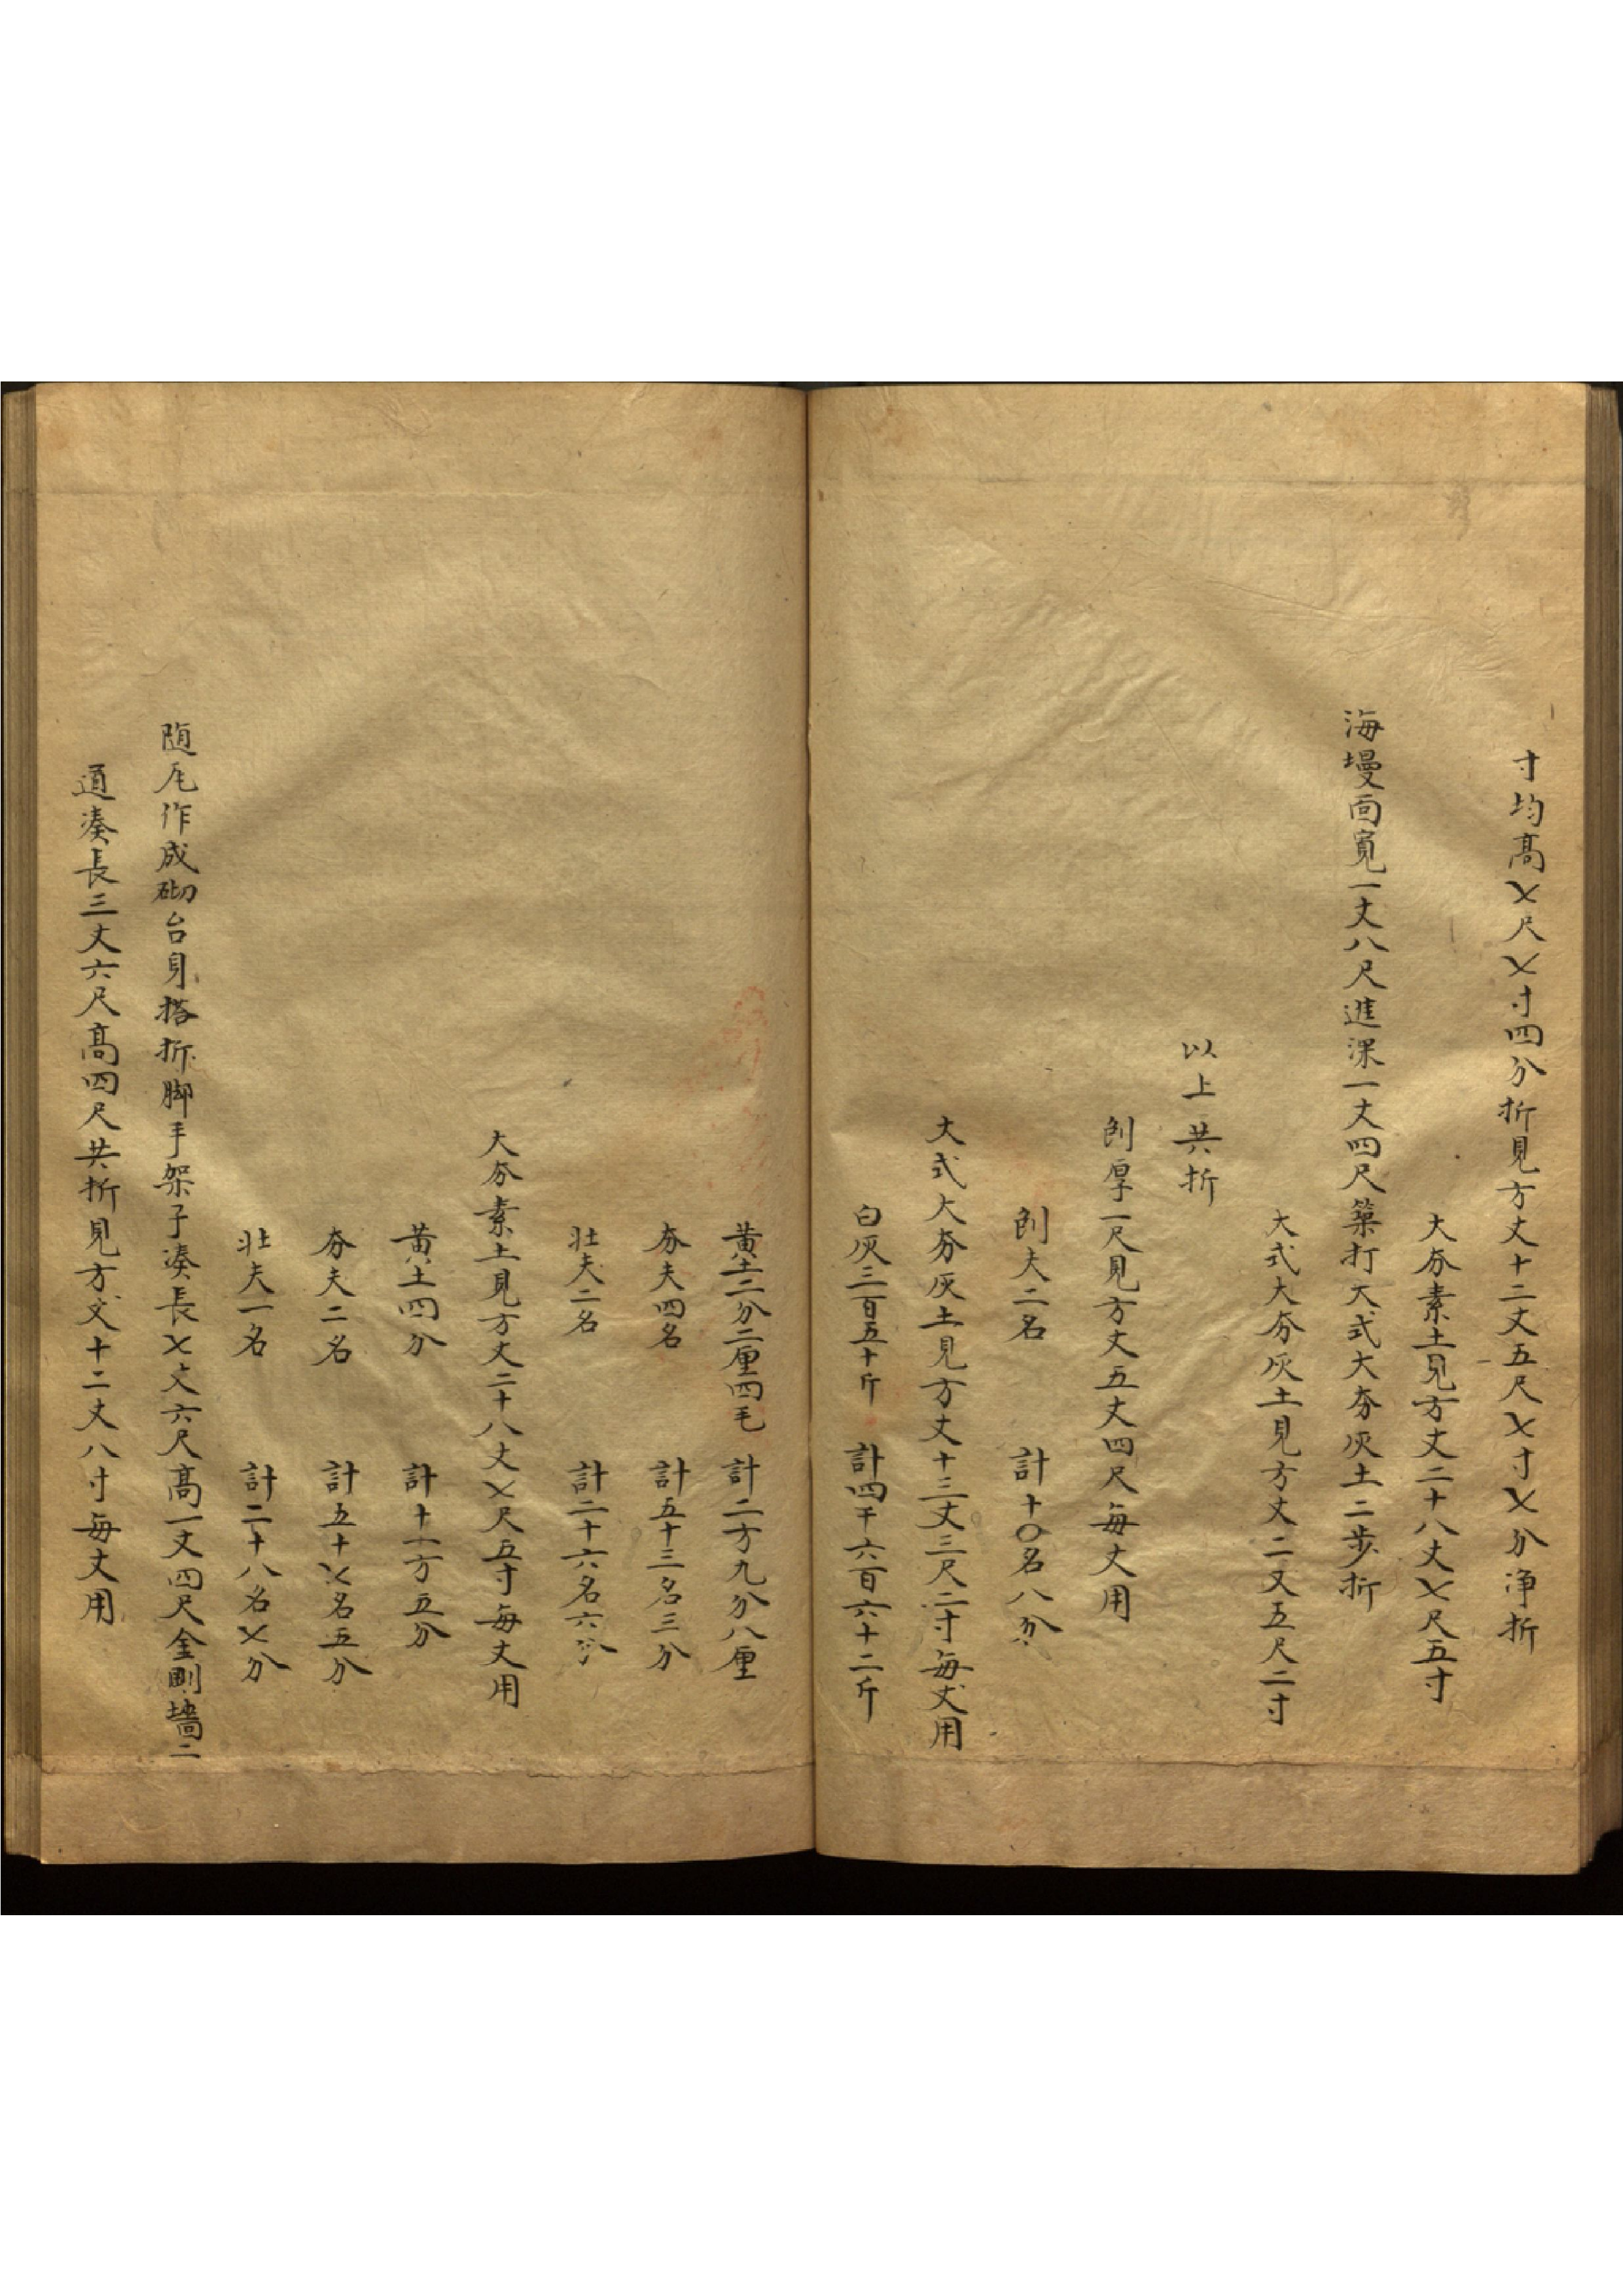 寸均高七尺七寸四分折見方丈十二丈五尺七寸七分淨折
大夯素土見方丈二十八丈七尺五寸
海墁面寬一丈八尺進深一丈四尺築打大式大夯灰土二步折
大式大夯灰土見方丈二丈五尺二寸
以上共折
刨厚一尺見方丈五丈四尺每丈用
刨夫二名 計十〇名八分
大式大夯灰土見方丈十三丈三尺二寸每丈用
白灰三百五十斤 計四千六百六十二斤
黃土二分二厘四毛 計二方九分八厘
夯夫四名 計五十三名三分
壯夫二名 計二十六名六分
大夯素土見方丈二十八丈七尺五寸每丈用
黃土四分 計十一方五分
夯夫二名 計五十七名五分
壯夫一名 計二十八名七分
随瓦作成砌台身搭拆脚手架子湊長七丈六尺高一丈四尺金剛墻二
道湊長三丈六尺高四尺共折見方丈十二丈八寸每丈用